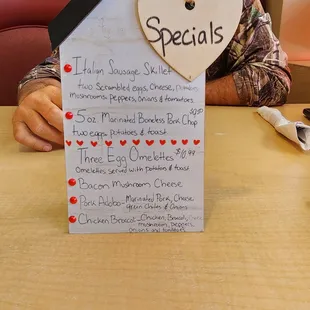 Specials
Italian Sausage Skillet
two Scrambled Eggs, Cheese, Potatoes
Mushrooms, Peppers, onions & tomatoes.
5oz Marinated Boneless Pork Chop
two eggs potatoes & toast
Three Egg Omelettes
Omelettes served with potatoes & toast
Bacon Mushroom Cheese
Pork Adobo - Marinated Pork, Cheese
Green Chiles & Onions
Chicken Broccoli - Chicken, Broccoli,
mushrooms, peppers,
onions and